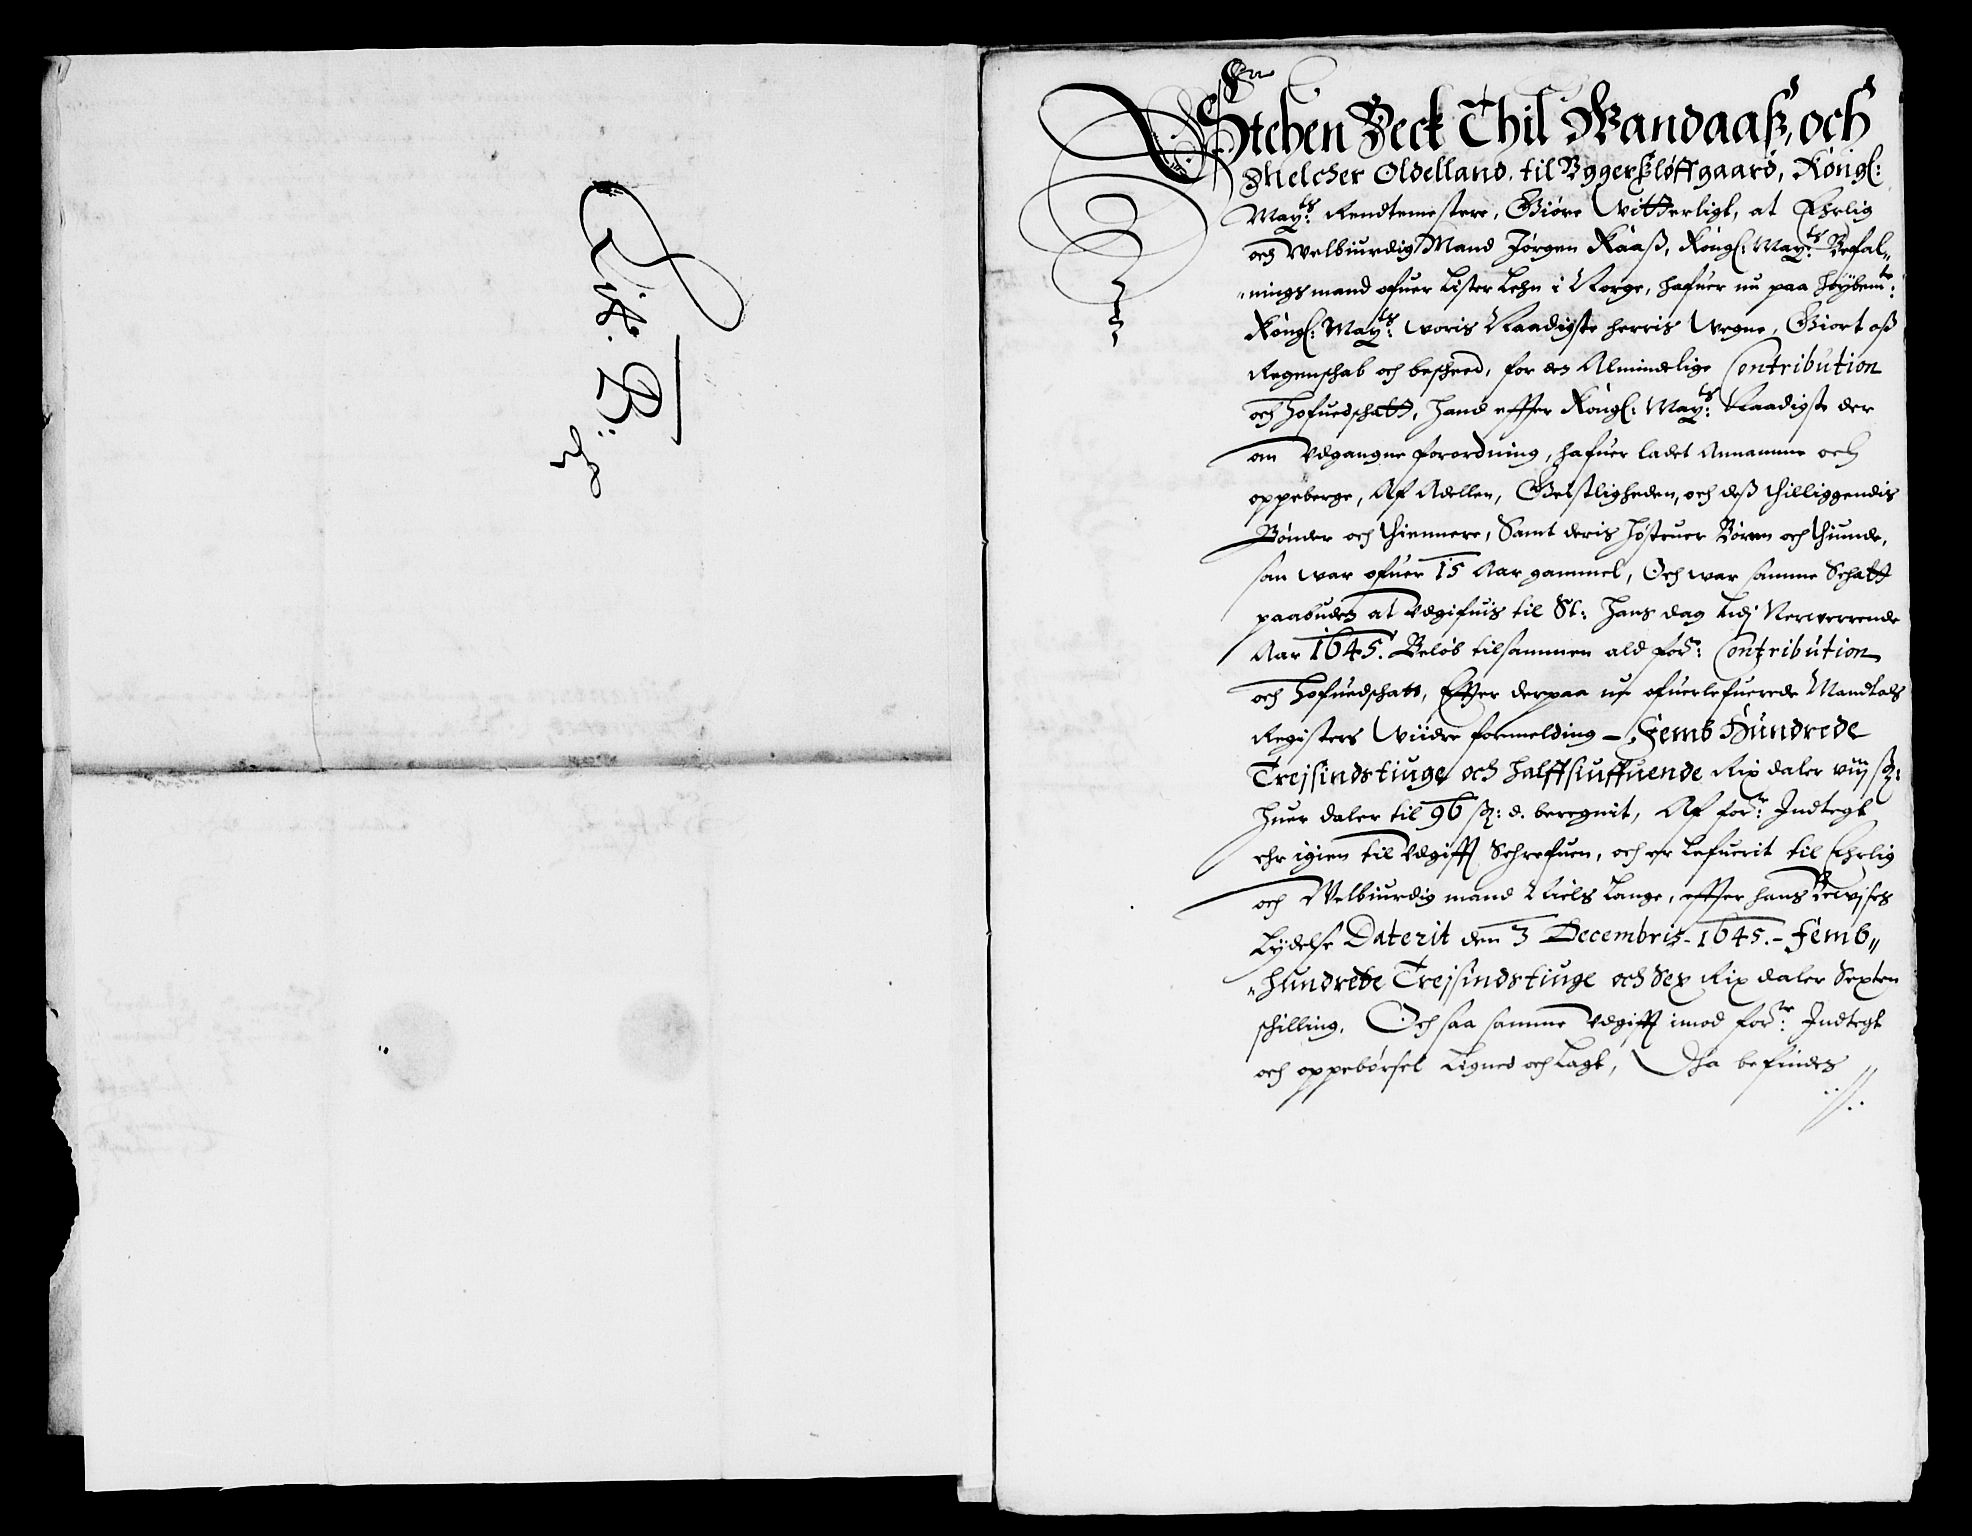 Lit. B:
Stehen Beck Thil Wandaaß, och
Melcher Oldelland, til Byggerßløffgaard, Kongl:
May.ts: Rendtemestere, Giøre Vitterligt, at Ehrlig
och Welbiurdig Mand Jørgen Kaaß, Kongl: May:ts Befal„
„ningsmand ofuer Lister Lehn i Norge, hafuer nu paa høybem.te:
Kongl: May:ts: woris Naadigste herris Wegne, Giort oß
Regenschab och bescheed, for den Almindelige Contribution
och Hofuedschatt, hand effter Kongl: May:ts: Naadigste der
om Udgangne forordning, hafuer ladet Annamme och
oppeberge, Af Adellen, Geistligheden, och deß tilliggendis
Bønder och Thiennere, Samt deris Høstruer Børen och Thiunde,
som war ofuer 15 Aar gammel, Och war samme Schatt
paabuden at Udgifuis til St: Hans dag udj Nerwerrende
Aar 1645. Beløb tilsammen ald for.ne: Contribution
och Hofuedschatt, Effter derpaa nu ofuerlefuerede Mandtals
Registers Viidre formelding – Femb Hundrede
Trejsindstiuge och halffsiuffuende Rix daler viij sz:
huer daler til 96 sz: d. beregnit, Af for.ne: Indtegt
ehr igien til Udgifft Schrefuen, och er Lefuerit til Ehrlig
och Welbiurdig mand Niels Lange, effter hans Bewises
Lydelse Daterit den 3 Decembris – 1645. – Femb„
„hundrede Trejsindstiuge och Sex Rix daler Sexten
schilling. Och saa samme Udgifft imod for.ne: Indtegt
och oppebørsel Ligned och Lagt, Tha befindes